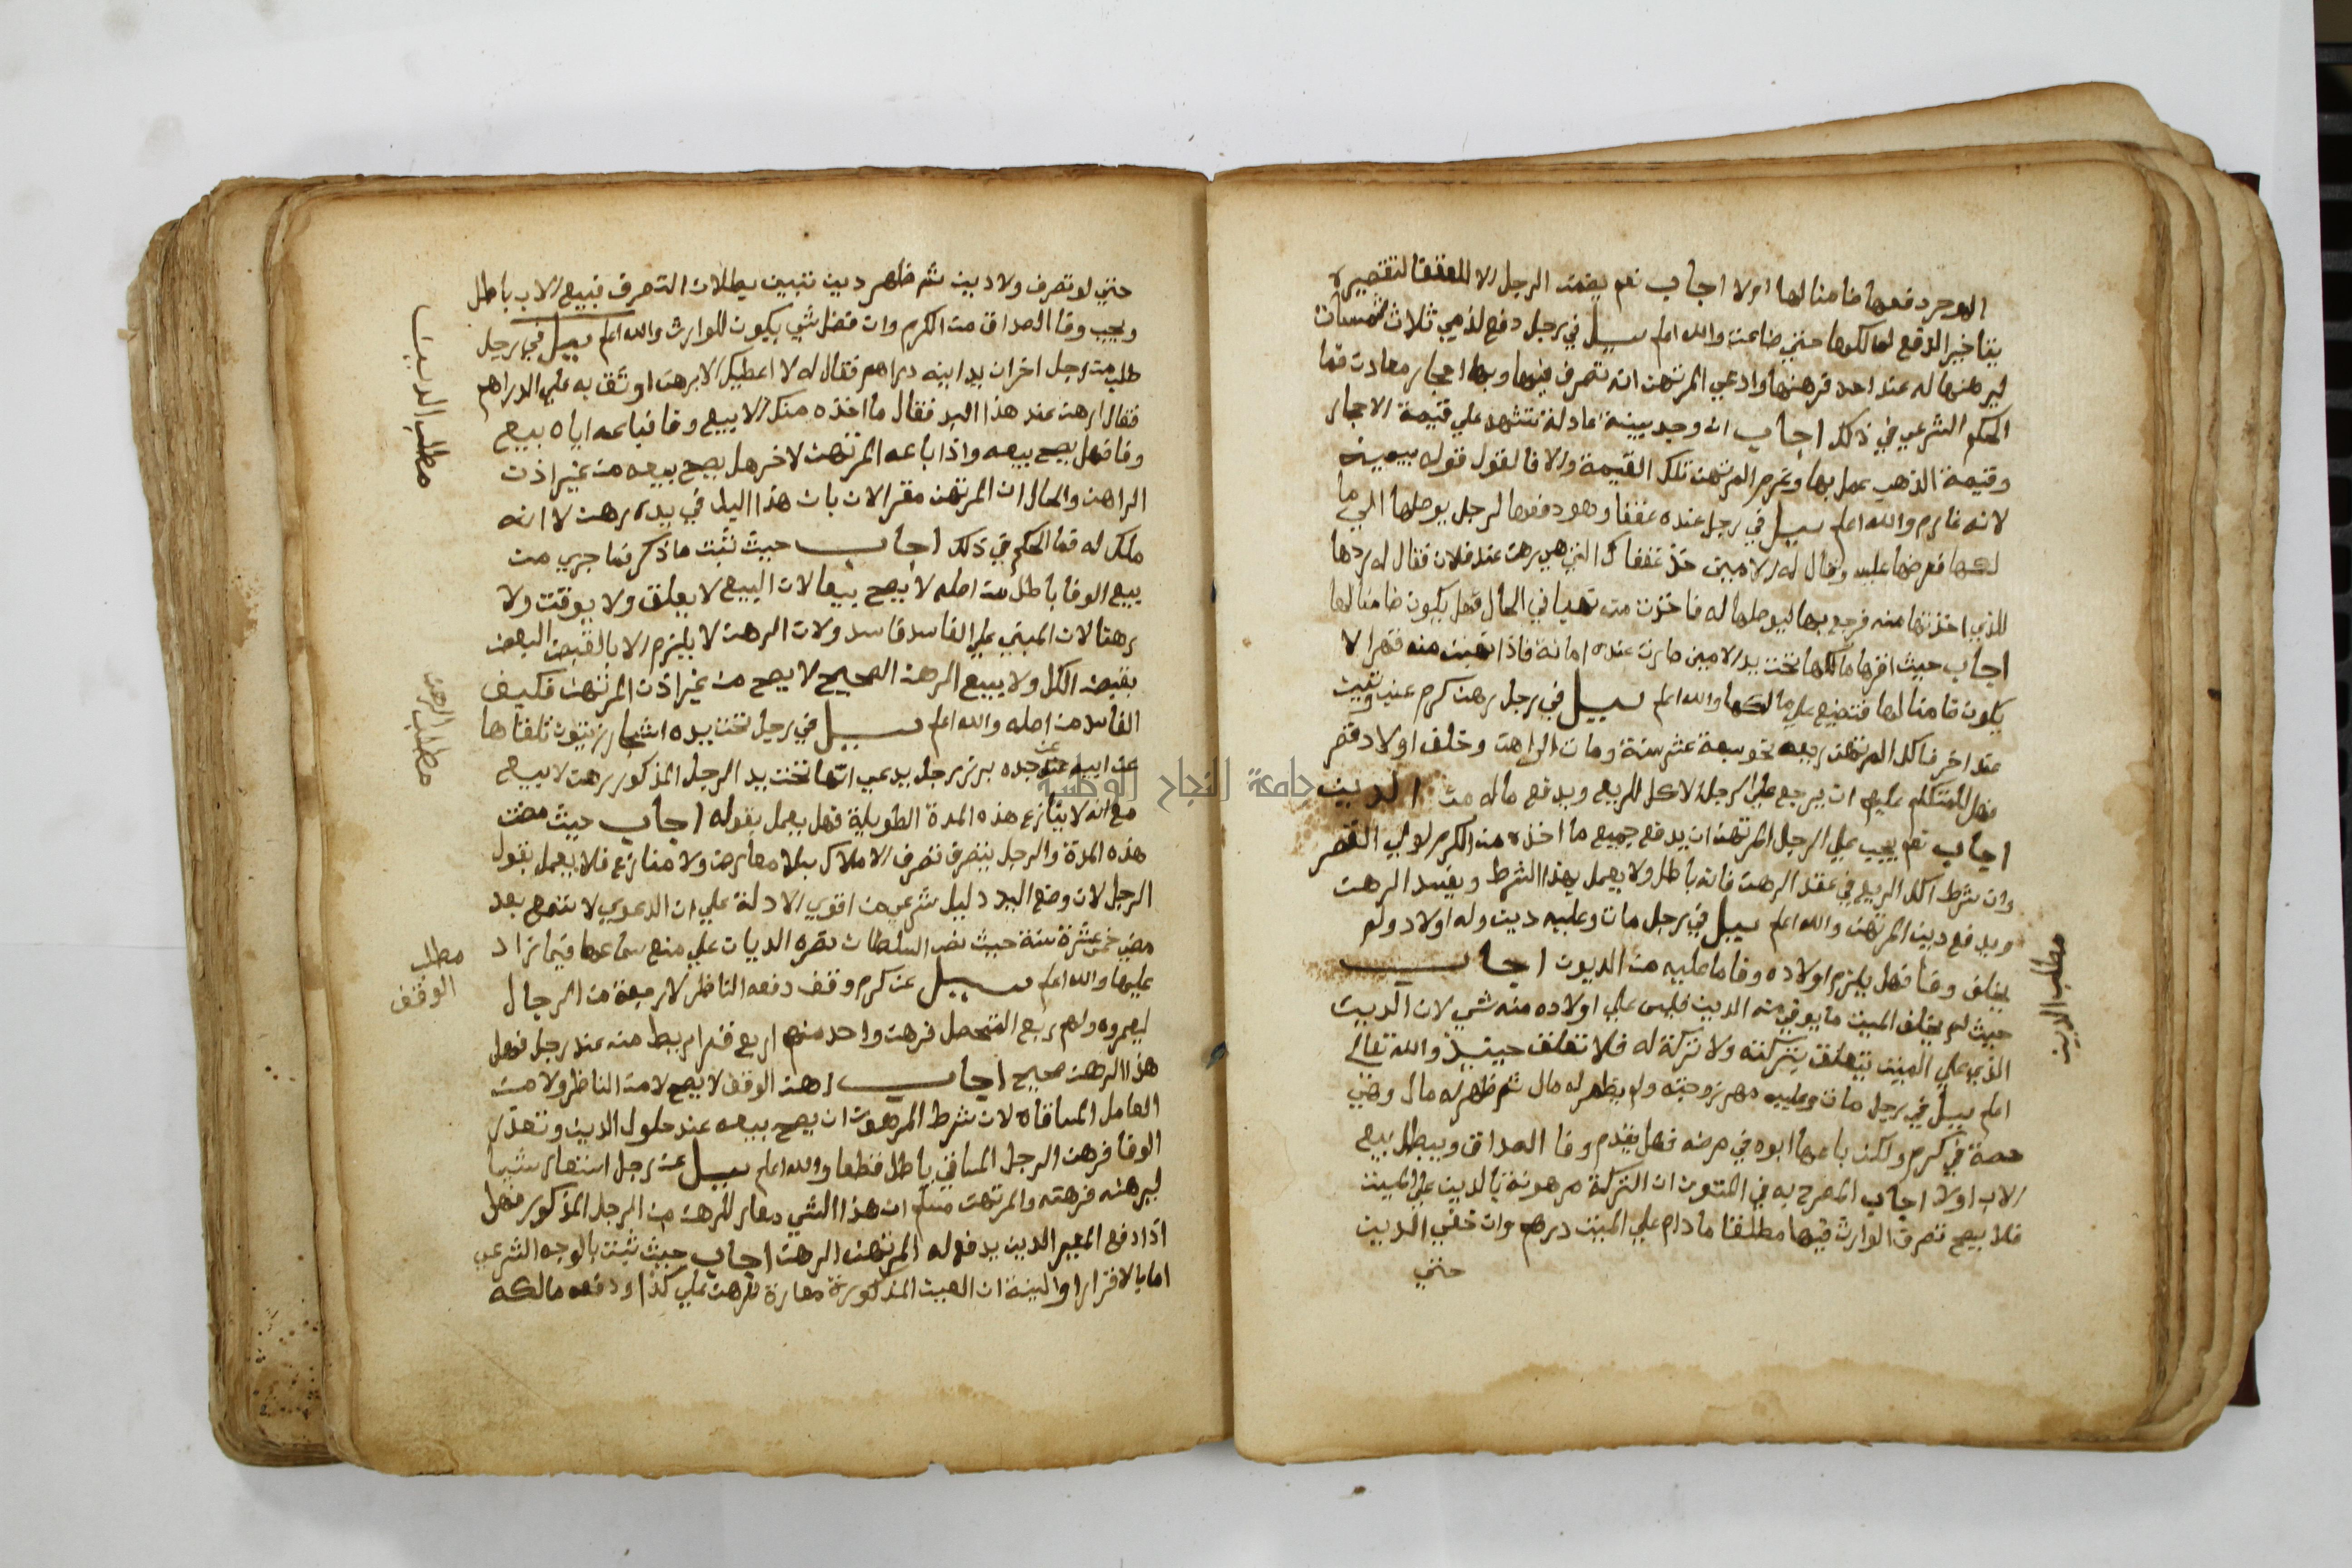 الوجر دفعها ضامنا لها اولا اجاب نعم يضمن الرجل الا للعففا لتقصيره
بتاخير الدفع لمالكها حتي ضاعت والله اعلم سيل في رجل دفع لذمي ثلاث خمسات
ليرهنها له عند احد فرهنها وادعي المرتهن انه تصرف فيها وبها احجار معادن فما
الحكم الشرعي في ذلك اجاب ان وجد بينة عادلة تشهد علي قيمة الاحجار
وقيمة الذهب عمل بها وغرم المرتهن تلك القيمة والا فالقول قوله بيمينه
لانه غارم والله اعلم سيل في رجل عنده عففا وهو دفعها لرجل يوصلها الي ما
لكها فعرضها عليه وقال له الامين خذ عففاك التي هي رهن عند فلان فقال له ردها
للذي اخذتها منه فرجع بها ليوصلها له فاخذت منه نهبا في الحال فهل يكون ضامنا لها
اجاب حيث اقرها مالكها تحت يد الامين صارت عنده امانة فاذا نهبت منه قهرا لا
يكون ضامنا لها فتضيع علي مالكها والله اعلم سيل في رجل رهن كرم عنب وتين
عند اخر فاكل المرتهن ريعه نحو سبعة عشر سنة ومات الراهن وخلف اولاد قصر
فهل للمتكلم عليهم ان يرجع علي الرجل الاكل للريع ويدفع ماله من الدين
اجاب نعم يجب علي الرجل المرتهن ان يدفع جميع ما اخذه من الكرم لولي القصر
وان شرط اكل الريع في عقد الرهن فانه باطل ولا يعمل بهذا الشرط ويفسد الرهن
ويدفع دين المرتهن والله اعلم سيل في رجل مات وعليه دين وله اولاد ولم
يخلف وفا فهل يلزم اولاده وفا ما عليه من الديون اجاب
حيث لم يخلف الميت ما يوفي منه الدين فليس علي اولاده منه شي لان الدين
الذي علي الميت يتعلق بتركته ولا تركة له فلا تعلق حينيذ والله تعالي
اعلم سيل في رجل مات وعليه مهر زوجته ولم يظهر له مال ثم ظهر له مال وهي
حصة في كرم ولكن باعها ابوه في مرضه فهل يقدم وفا الصداق ويبطل بيع
الاب اولا اجاب المصرح به في المتون ان التركة مرهونة بالدين علي الميت
فلا يصح تصرف الوارث فيها مطلقا ما دام علي الميت درهم وان خفي الدين
حتي
مطلب الدين
حتي لو تصرف ولا دين ثم ظهر دين تبين بطلان التصرف فبيع الاب باطل
ويجب وفا الصداق من الكرم وان فضل شي يكون للوارث والله اعلم سيل في رجل
طلب من رجل اخر ان يداينه دراهم فقال له لا اعطيك الا برهن اوثق به علي الدراهم
فقال ارهن عند هذا اليد فقال ما اخذه منك الا بيع وفا فباعه اياه بيع
وفا فهل يصح بيعه واذا باعه المرتهن لاخر هل يصح بيعه من غير اذن
الراهن والحال ان المرتهن مقر الان بان هذا اليد في يده رهن لا انه
ملك له فما الحكم في ذلك اجاب حيث ثبت ما ذكر فما جري من
بيع الوفا باطل من اصله لا يصح بيعا لان البيع لا يعلق ولا يوقت ولا
رهنا لان المبني علي الفاسد فاسد ولان الرهن لا يلزم الا بالقبض البعض
بقبض الكل ولا بيع الرهن الصحيح لا يصح من غير اذن المرتهن فكيف
الفاسد من اصله والله اعلم سيل في رجل تحت يده اشجار زيتون تلقاها
عن ابيه عن جده برز رجل يدعي انها تحت يد الرجل المذكور رهن لا بيع
مع انه لا ينازع هذه المدة الطويلة فهل يعمل بقوله اجاب حيث مضت
هذه المدة والرجل يتصرف تصرف الاملاك بلا معارض ولا منازع فلا يعمل بقول
الرجل لان وضع اليد دليل شرعي من اقوي الادلة علي ان الدعوي لا تسمع بعد
مضي خمس عشرة سنة حيث نصر السلطان نصره الديان علي منع سماعها فيما زاد
عليها والله اعلم سيل عن كرم وقف دفعه الناظر لاربعة من الرجال
ليعمروه ولهم ربع المتحصل فرهن واحد منهم اربع قراريط منه عند رجل فهل
هذا الرهن صحيح اجاب رهن الوقف لا يصح لا من الناظر ولا من
العامل المساقاه لان شرط المرهون ان يصح بيعه عند حلول الدين وتعذر
الوفا فرهن الرجل المساقي باطل قطعا والله اعلم سيل عن رجل استعار شيا
ليرهنه فرهنه والمرتهن مسلم ان هذا الشي معار للرهن من الرجل المذكور فهل
اذا دفع المعير الدين يدفع له المرتهن الرهن اجاب حيث ثبت بالوجه الشرعي
اما بالاقرار او البينة ان العين المذكورة معارة لترهن علي كذا ودفعه مالكه
مطلب الدين
مطلب الرهن
مطلب
الوقف
جامعة النجاح الوطنية